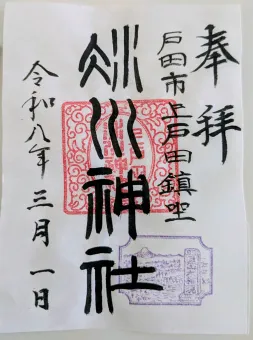 奉拝
戸田市上戸田鎮坐
氷川神社
令和八年三月一日